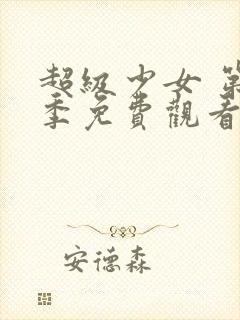 超級少女 第
季免費觀看
安德森